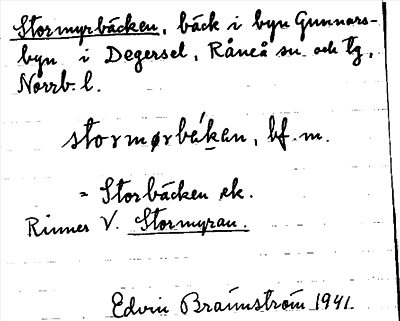 Stormyrbäcken, bäck i byn Gunnars-
byn i Degersel, Råneå sn. och tg,
Norrb. l.
stormørbék̬en, bf. m.
= Storbäcken ek.
Rinner V. Stormyran.
Edvin Brännström 1941.